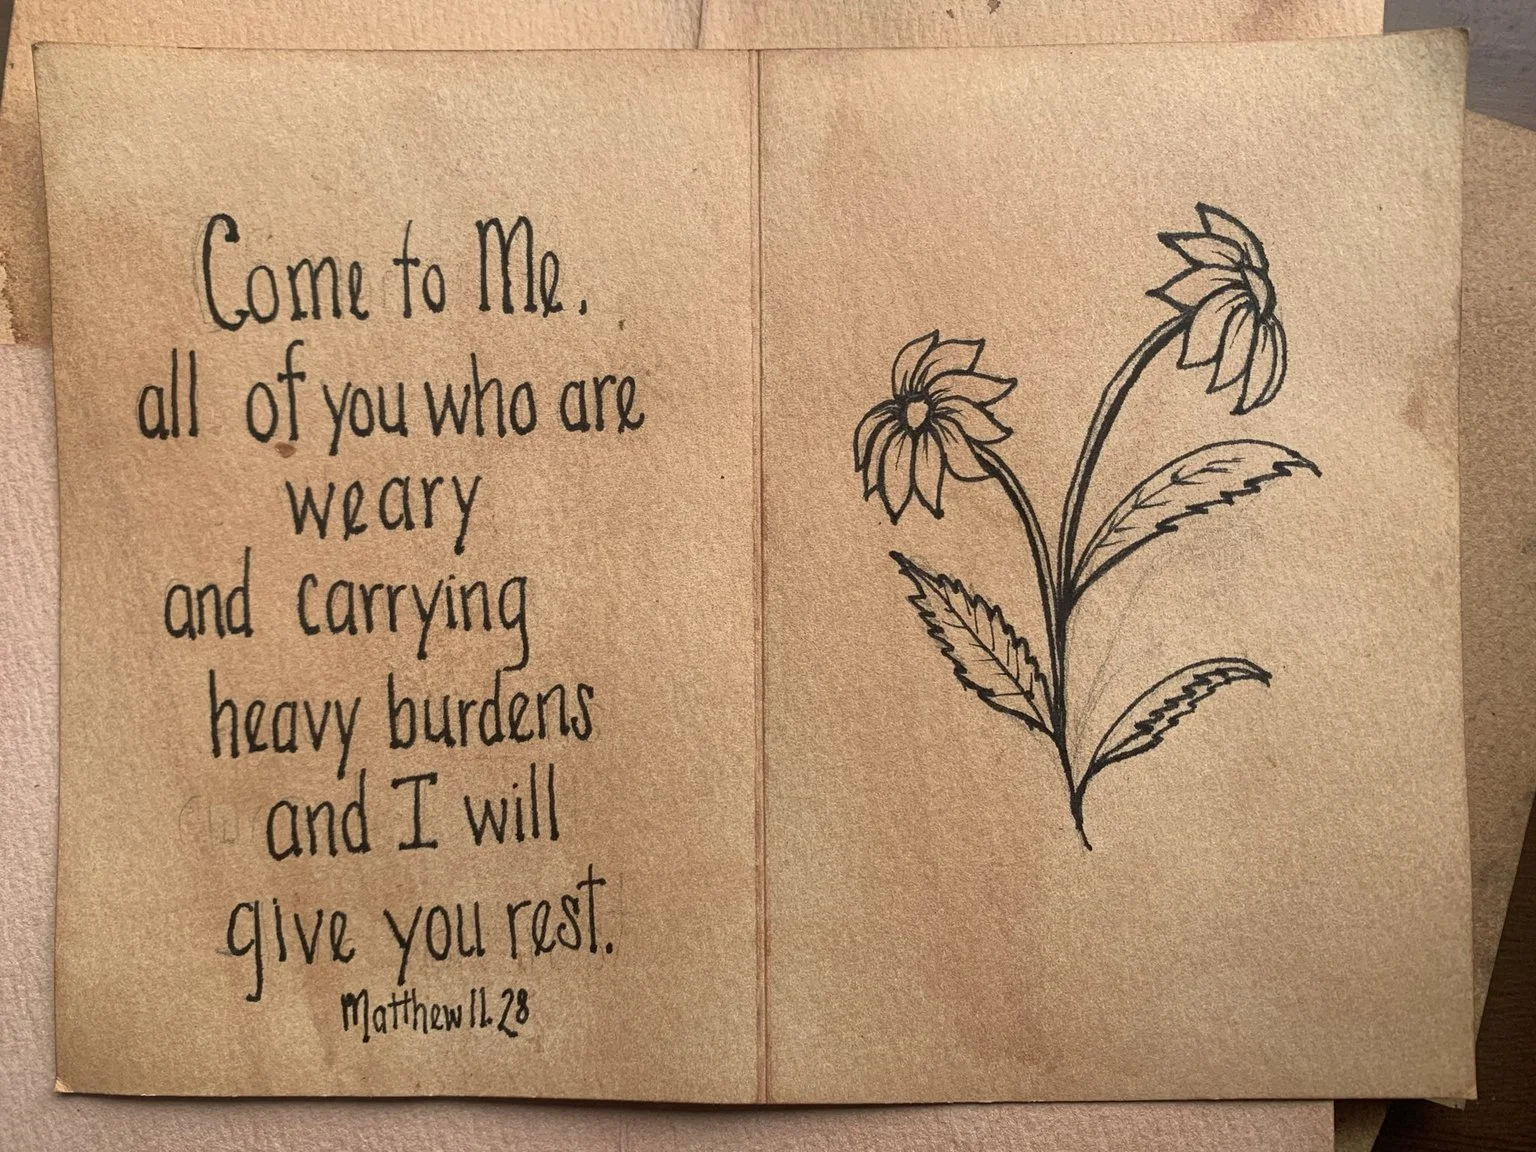 Come to Me,
all of you who are
weary
and carrying
heavy burdens
and I will
give you rest.
Matthew 11.28